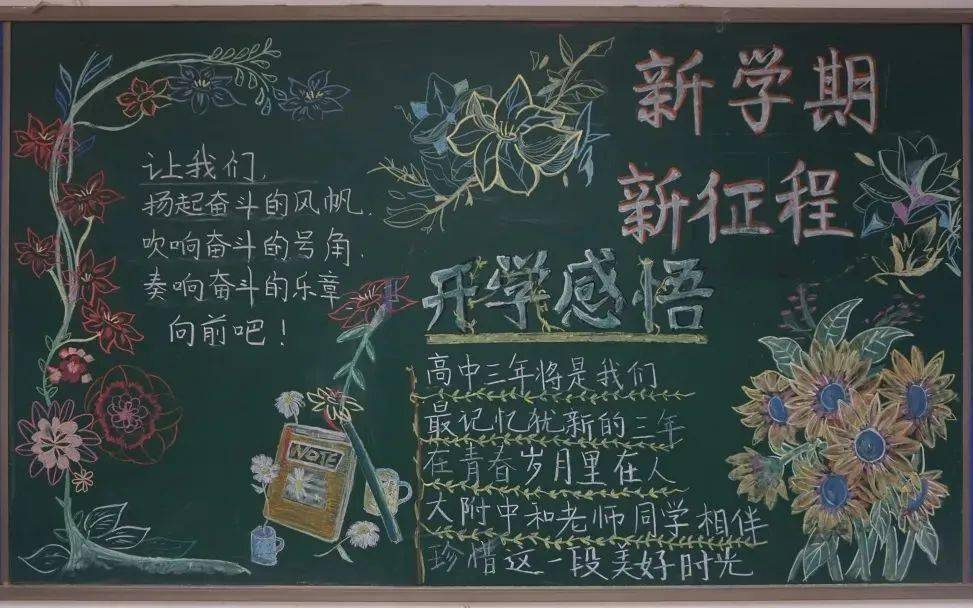 新学期
新征程
让我们,
扬起奋斗的风帆.
吹响奋斗的号角.
奏响奋斗的乐章
向前吧!
开学感悟
高中三年将是我们
最记忆犹新的三年
在青春岁月里在人
大附中和老师同学相伴
珍惜这一段美好时光
NOTE